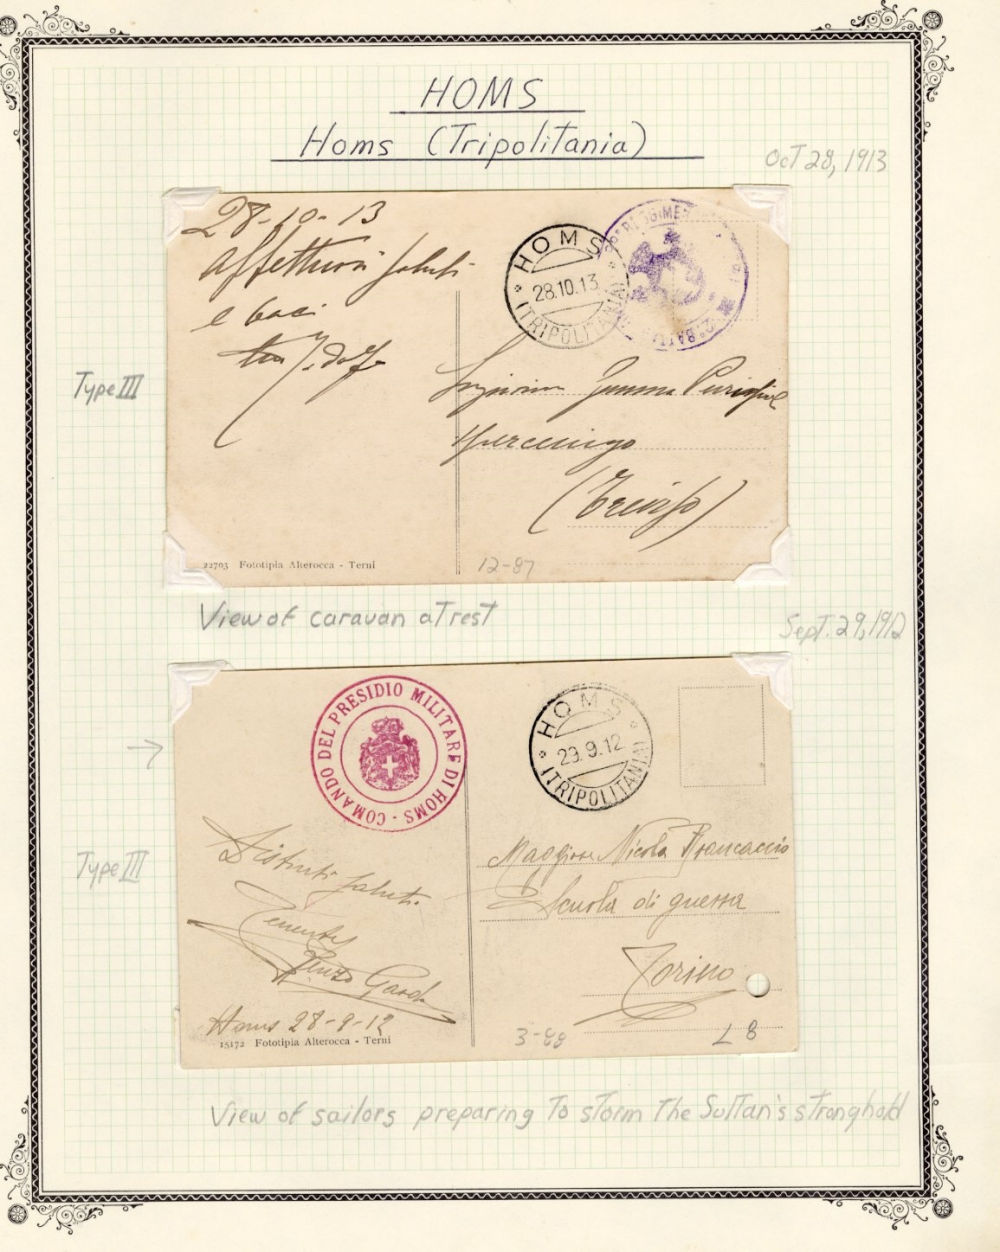 HOMS
Homs (Tripolitania)
Oct 28, 1913
28-10-13
Affettuosi saluti
e baci
HOMS
28.10.13
(TRIPOLITANIA)
REGGIMEN
2° BATT
Type III
Signorina Gemma
(Treviso)
22703 Fototipia Alterocca - Terni
12-87
View of caravan at rest
Sept. 29, 1912
COMANDO DEL PRESIDIO MILITARE DI HOMS
HOMS
29.9.12
(TRIPOLITANIA)
→
Type III
Maggiore Nicola Brancaccio
Scuola di guerra
Torino
Distinti saluti
Tenente
Renzo
Homs 28-9-12
15172 Fototipia Alterocca - Terni
3-88
L 8
View of sailors preparing to storm the Sultan's stronghold